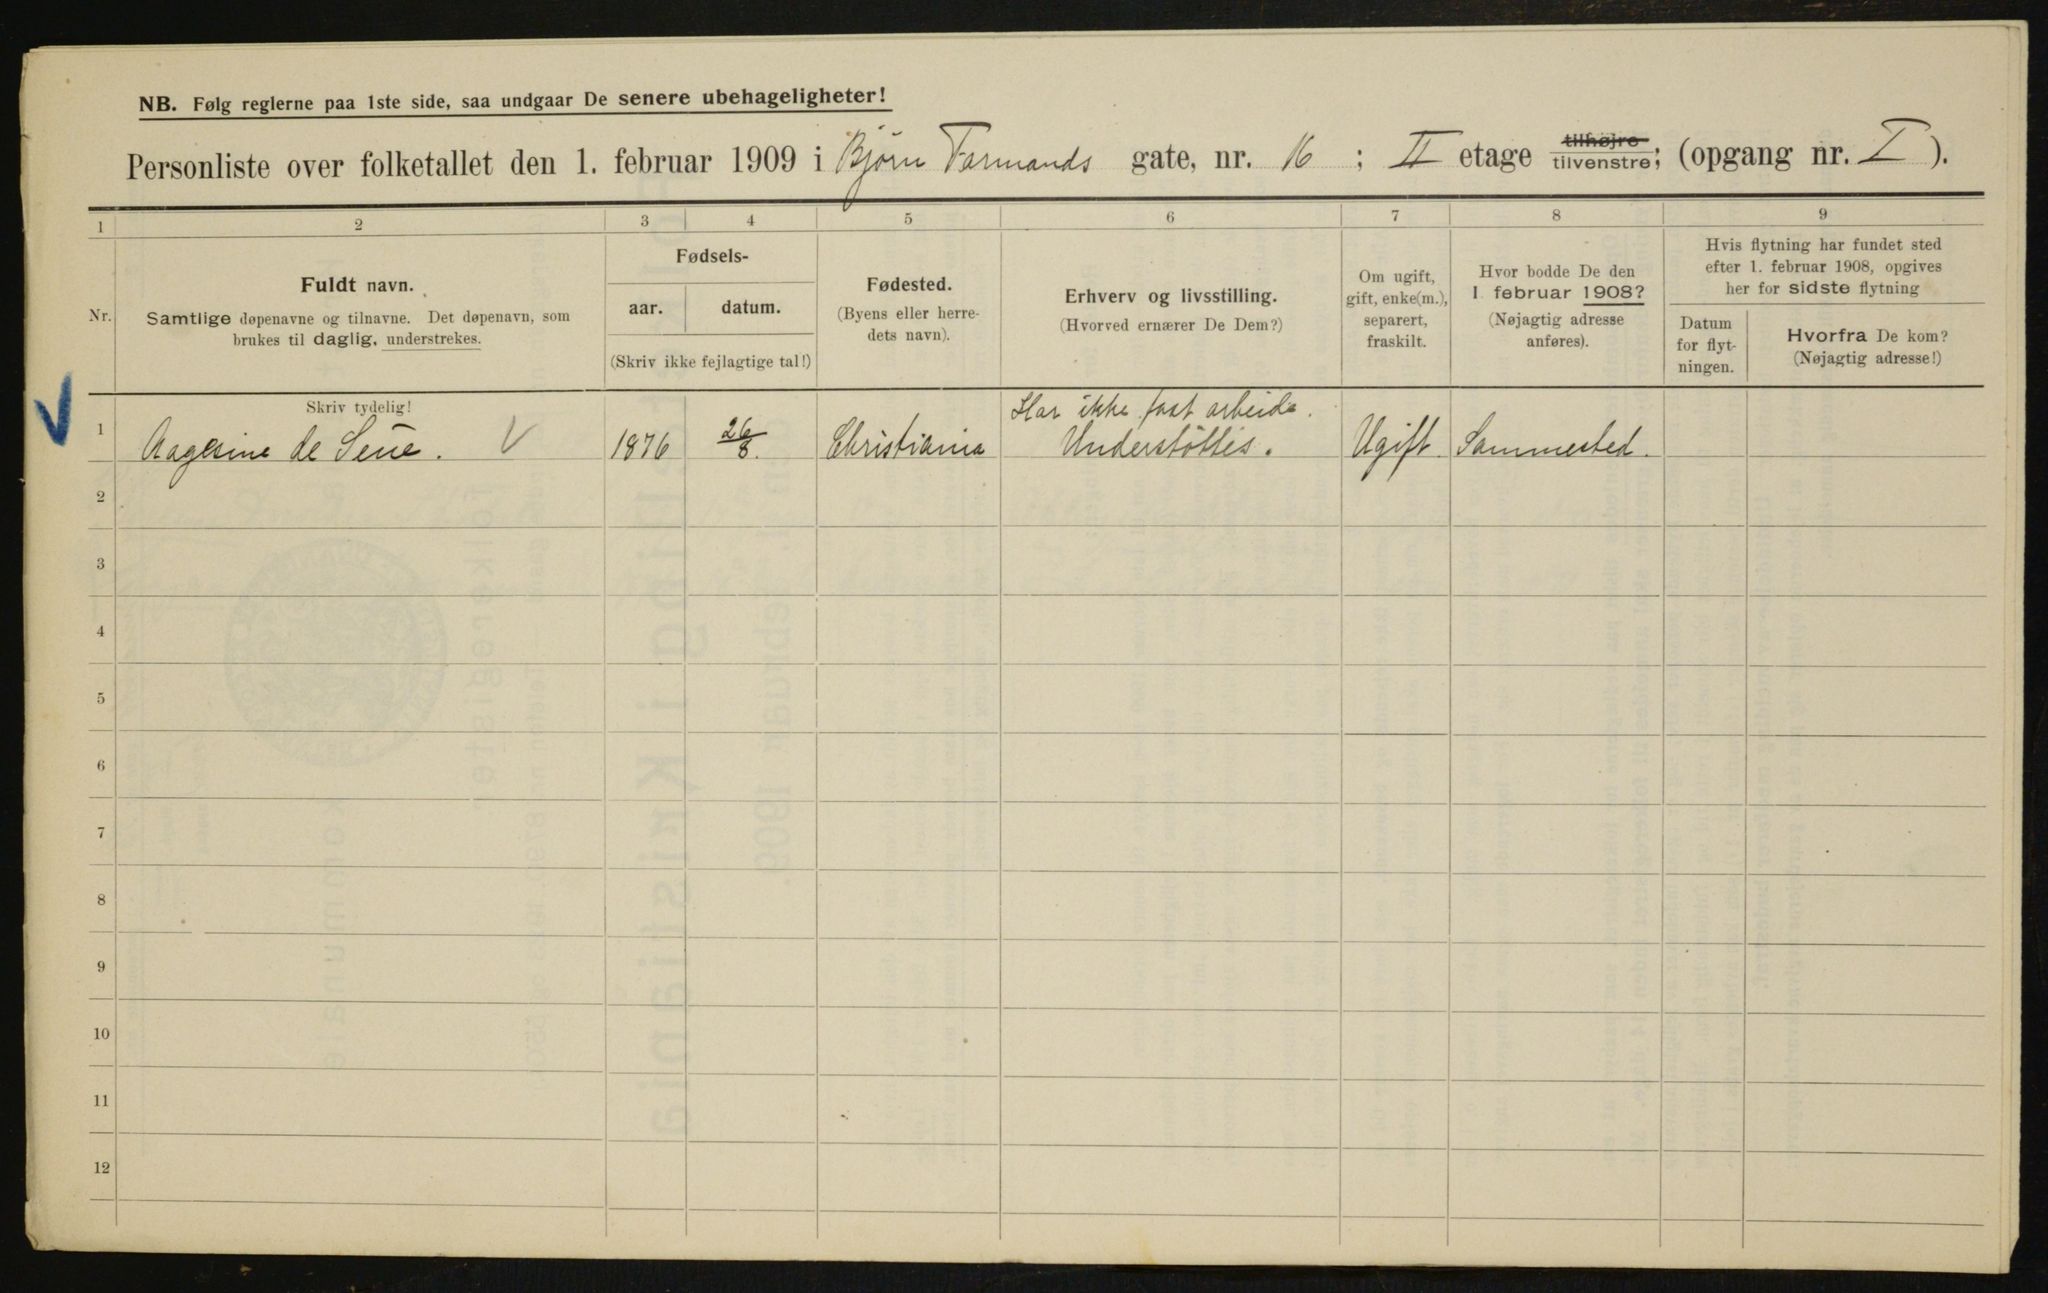 NB. Følg reglerne paa 1ste side, saa undgaar De senere ubehageligheter!
Personliste over folketallet den 1. februar 1909 i Bjørn Farmands gate, nr. 16 ; II etage tilhøjre tilvenstre; (opgang nr. I ).
1 2 3 4 5 6 7 8 9
Nr.
Fuldt navn.
Samtlige døpenavne og tilnavne. Det døpenavn, som
brukes til daglig, understrekes.
Fødsels-
aar. datum.
(Skriv ikke fejlagtige tal!)
Fødested.
(Byens eller herre-
dets navn).
Erhverv og livsstilling.
(Hvorved ernærer De Dem?)
Om ugift,
gift, enke(m.),
separert,
fraskilt.
Hvor bodde De den
1. februar 1908?
(Nøjagtig adresse
anføres).
Hvis flytning har fundet sted
efter 1. februar 1908, opgives
her for sidste flytning
Datum
for flyt-
ningen.
Hvorfra De kom?
(Nøjagtig adresse!)
Skriv tydelig!
Har ikke fast arbeide.
1 Aagesine de Seue. 1876 26/8. Christiania Understøttes. Ugift. Sammested.
2
3
4
5
6
7
8
9
10
11
12